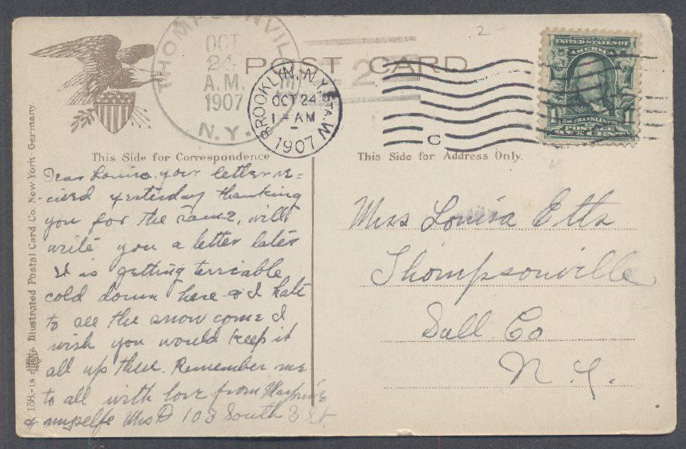 THOMPSONVILLE
OCT
24
A.M.
1907
N.Y.
POST CARD
2
BROOKLYN, N.Y. STA. W.
OCT 24
1-AM
1907
C
UNITED STATES OF
AMERICA
FRANKLIN
POSTAGE
This Side for Correspondence
This Side for Address Only.
Illustrated Postal Card Co. New York-Germany.
Dear Louisa, your letter re=
cieved yesterday thanking
you for the same, will
write you a letter later
It is getting terriable
cold down here & I hate
to see the snow come I
wish you would keep it
all up there. Remember me
to all with love from
& myselfe Mrs D 103 South 3 St.
Miss Louisa Etts
Thompsonville
Sull. Co
N.Y.